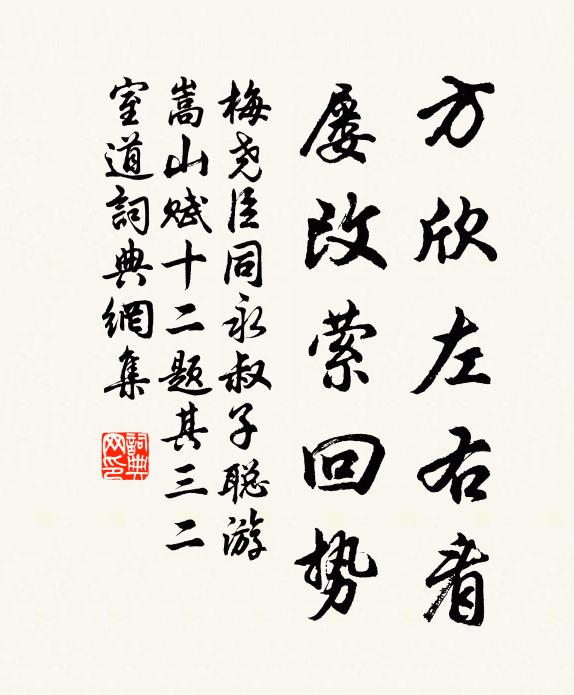 方欣左右看
屡改萦回势
梅尧臣同永叔子聪游
嵩山赋十二题其三二
室道詞典網集
詞典网印